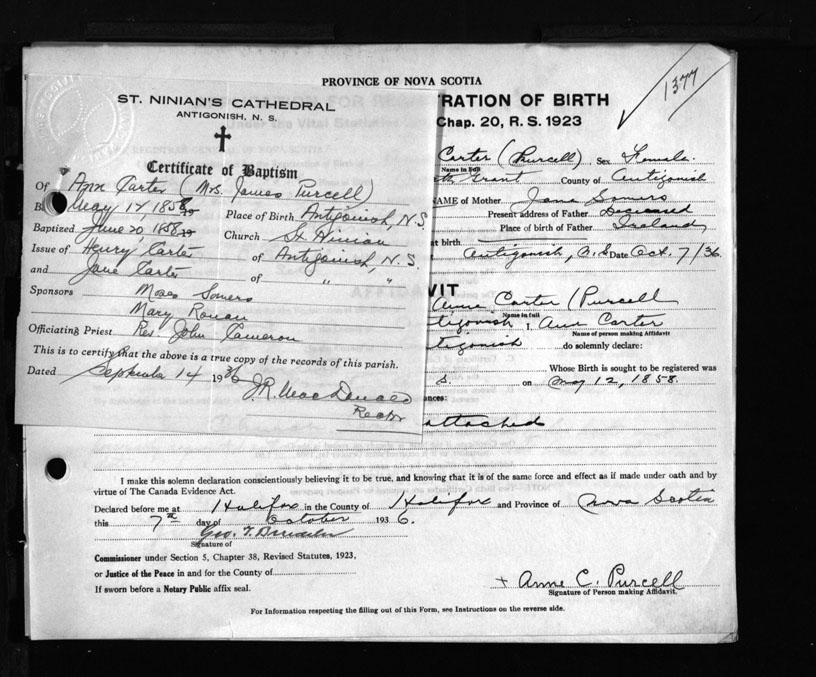 PROVINCE OF NOVA SCOTIA
1377
TRATION OF BIRTH
Chap. 20, R. S. 1923
Carter (Purcell) Sex Female
Name in full
Grant County of Antigonish
NAME of Mother Jane Somers
Present address of Father Deceased
Place of birth of Father Ireland
at birth
Antigonish, N.S. Date Oct. 7/36
VIT
Anne Carter (Purcell
Name in full
ntigonish I, Ann Carter
Name of person making Affidavit
ntigonish do solemnly declare:
Whose Birth is sought to be registered was
S. on May 12, 1858.
ances:
attached
ST. NINIAN'S CATHEDRAL
ANTIGONISH, N. S.
Certificate of Baptism
Of Ann Carter (Mrs. James Purcell)
B May 17, 1858 Place of Birth Antigonish, N.S.
Baptized June 20 1858 Church St Ninian
Issue of Henry Carter of Antigonish, N.S.
and Jane Carter of " "
Sponsors Moses Somers
Mary Ronan
Officiating Priest Rev. John Cameron
This is to certify that the above is a true copy of the records of this parish.
Dated September 14 1936
J.R. MacDonald
Rector
I make this solemn declaration conscientiously believing it to be true, and knowing that it is of the same force and effect as if made under oath and by
virtue of The Canada Evidence Act.
Declared before me at Halifax in the County of Halifax and Province of Nova Scotia
this 7th day of October 1936.
Geo. T.
Signature of
Commissioner under Section 5, Chapter 38, Revised Statutes, 1923,
or Justice of the Peace in and for the County of
If sworn before a Notary Public affix seal.
+ Anne C. Purcell
Signature of Person making Affidavit.
For Information respecting the filling out of this Form, see Instructions on the reverse side.